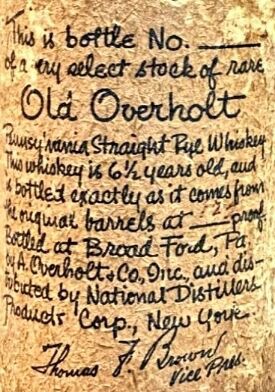 This is bottle No. ____
of a very select stock of rare
Old Overholt
Pennsylvania Straight Rye Whiskey
This whiskey is 6½ years old, and
is bottled exactly as it comes from
the original barrels at ____ proof.
Bottled at Broad Ford, Pa.
by A. Overholt & Co., Inc., and dis-
tributed by National Distillers
Products Corp., New York.
Thomas F. Brown
Vice Pres.